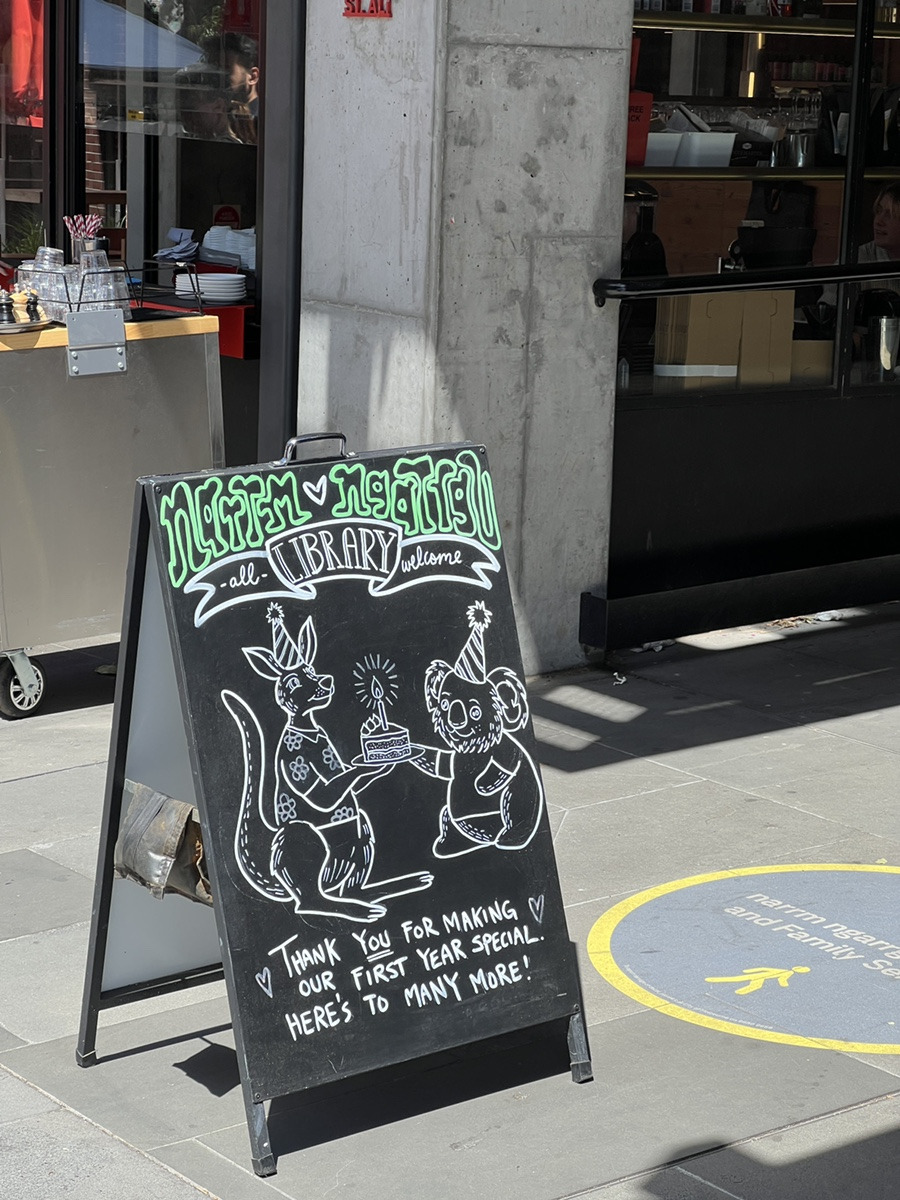 ST.ALi
narrm ngarrgu
-all- LIBRARY welcome
THANK YOU FOR MAKING
OUR FIRST YEAR SPECIAL.
HERE'S TO MANY MORE!
narrm ngarrg
and Family Se